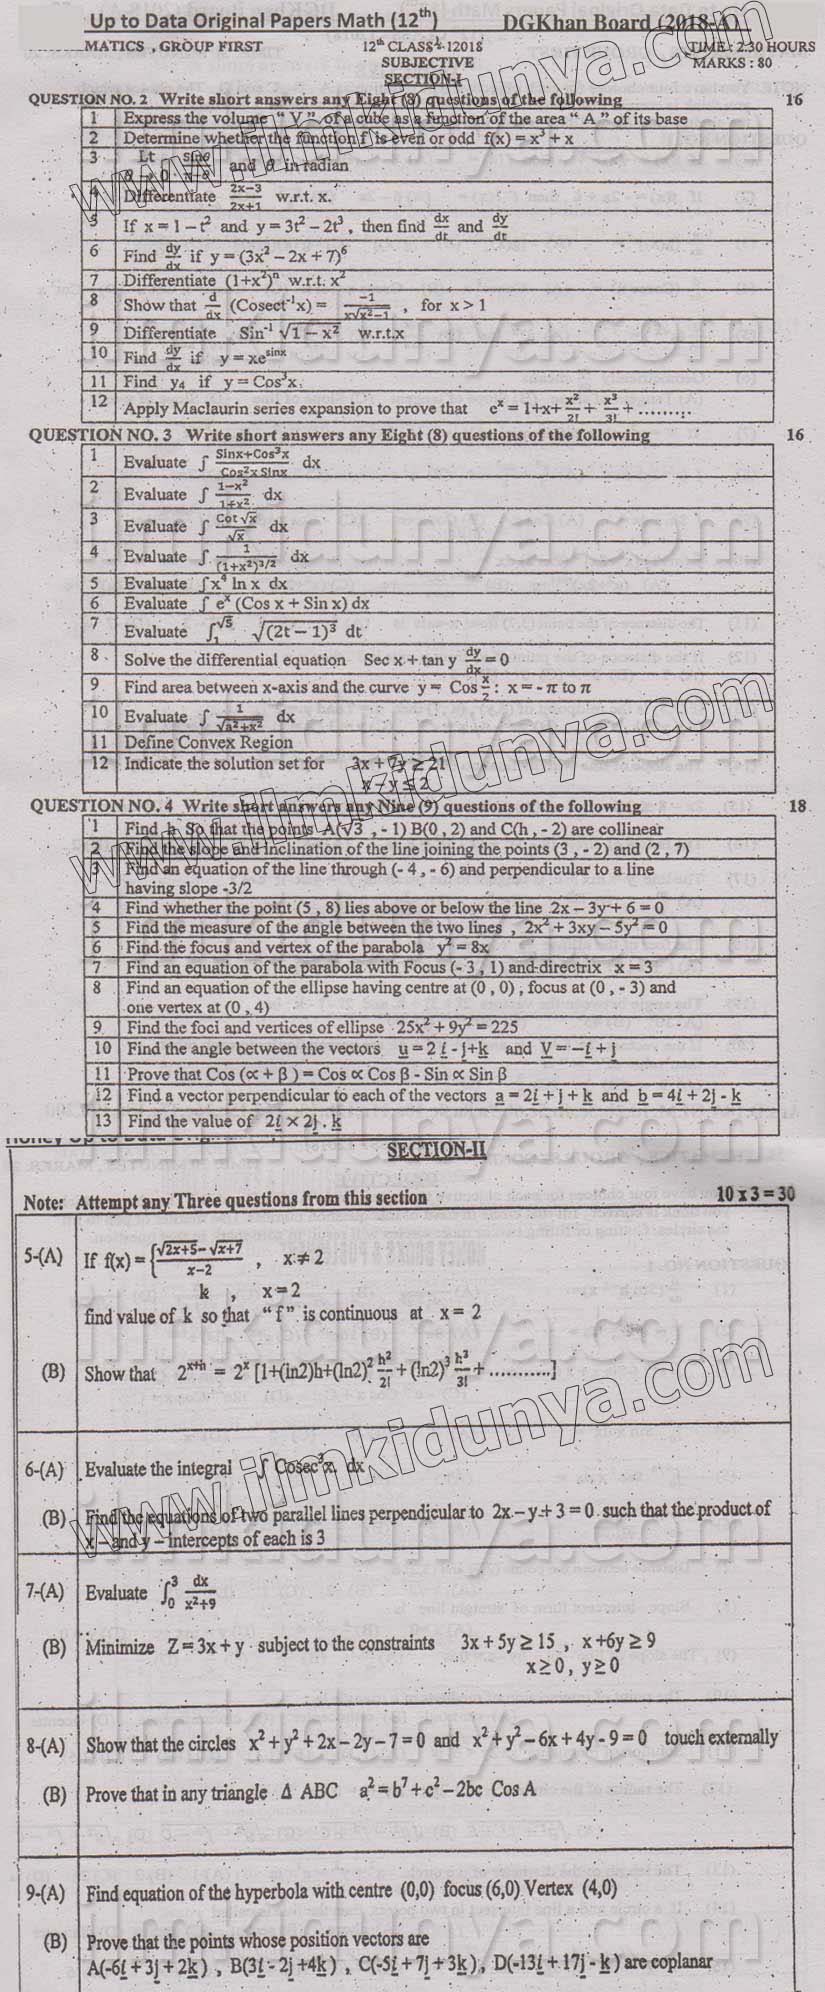 Up to Data Original Papers Math (12th) DGKhan Board (2018-A)
MATICS , GROUP FIRST 12th CLASS-12018 TIME : 2:30 HOURS
SUBJECTIVE MARKS : 80
SECTION-I
QUESTION NO. 2 Write short answers any Eight (8) questions of the following 16
1 Express the volume "V" of a cube as a function of the area "A" of its base
2 Determine whether the function f is even or odd f(x) = x³ + x
3 Lt θ→0 sinθ/π-θ and θ in radian
4 Differentiate 2x−3/2x+1 w.r.t. x.
5 If x = 1 – t² and y = 3t² – 2t³ , then find dx/dt and dy/dt
6 Find dy/dx if y = (3x² – 2x + 7)⁶
7 Differentiate (1+x²)ⁿ w.r.t. x²
8 Show that d/dx (Cosect⁻¹x) = −1/x√x²−1 , for x > 1
9 Differentiate Sin⁻¹ √1 − x² w.r.t.x
10 Find dy/dx if y = xe^sinx
11 Find y₄ if y = Cos³x.
12 Apply Maclaurin series expansion to prove that eˣ = 1+x+ x²/2! + x³/3! + .........
QUESTION NO. 3 Write short answers any Eight (8) questions of the following 16
1 Evaluate ∫ Sinx+Cos³x/Cos²x Sinx dx
2 Evaluate ∫ 1−x²/1+x² dx
3 Evaluate ∫ Cot √x/√x dx
4 Evaluate ∫ 1/(1+x²)^3/2 dx
5 Evaluate ∫x⁴ ln x dx
6 Evaluate ∫ eˣ (Cos x + Sin x) dx
7 Evaluate ∫₁^√5 √(2t − 1)³ dt
8 Solve the differential equation Sec x + tan y dy/dx = 0
9 Find area between x-axis and the curve y = Cos x/2 : x = - π to π
10 Evaluate ∫ 1/√a²+x² dx
11 Define Convex Region
12 Indicate the solution set for 3x + 7y ≥ 21
x – y ≤ 2
QUESTION NO. 4 Write short answers any Nine (9) questions of the following 18
1 Find h So that the points A(√3 , - 1) B(0 , 2) and C(h , - 2) are collinear
2 Find the slope and inclination of the line joining the points (3 , - 2) and (2 , 7)
3 Find an equation of the line through (- 4 , - 6) and perpendicular to a line
having slope -3/2
4 Find whether the point (5 , 8) lies above or below the line 2x – 3y + 6 = 0
5 Find the measure of the angle between the two lines , 2x² + 3xy – 5y² = 0
6 Find the focus and vertex of the parabola y² = 8x
7 Find an equation of the parabola with Focus (- 3 , 1) and directrix x = 3
8 Find an equation of the ellipse having centre at (0 , 0) , focus at (0 , - 3) and
one vertex at (0 , 4)
9 Find the foci and vertices of ellipse 25x² + 9y² = 225
10 Find the angle between the vectors u = 2 i - j+k and V = −i + j
11 Prove that Cos (∝ + β ) = Cos ∝ Cos β - Sin ∝ Sin β
12 Find a vector perpendicular to each of the vectors a = 2i + j + k and b = 4i + 2j - k
13 Find the value of 2i × 2j . k
SECTION-II
Note: Attempt any Three questions from this section 10 x 3 = 30
5-(A) If f(x) = {√2x+5−√x+7/x−2 , x ≠ 2
k , x = 2
find value of k so that "f" is continuous at x = 2
(B) Show that 2^x+h = 2ˣ [1+(in2)h+(ln2)² h²/2! + (ln2)³ h³/3! + ...........]
6-(A) Evaluate the integral ∫ Cosec³x dx
(B) Find the equations of two parallel lines perpendicular to 2x – y + 3 = 0 such that the product of
x – and y – intercepts of each is 3
7-(A) Evaluate ∫₀³ dx/x²+9
(B) Minimize Z = 3x + y subject to the constraints 3x + 5y ≥ 15 , x +6y ≥ 9
x ≥ 0 , y ≥ 0
8-(A) Show that the circles x² + y² + 2x – 2y – 7 = 0 and x² + y² – 6x + 4y - 9 = 0 touch externally
(B) Prove that in any triangle Δ ABC a² = b⁷ + c² – 2bc Cos A
9-(A) Find equation of the hyperbola with centre (0,0) focus (6,0) Vertex (4,0)
(B) Prove that the points whose position vectors are
A(-6i + 3j + 2k) , B(3i - 2j +4k) , C(-5i + 7j + 3k) , D(-13i + 17j - k ) are coplanar
www.ilmkidunya.com
www.ilmkidunya.com
www.ilmkidunya.com
ilmkidunya.com
ilmkidunya.com
ilmkidunya.com
ilmkidunya.com